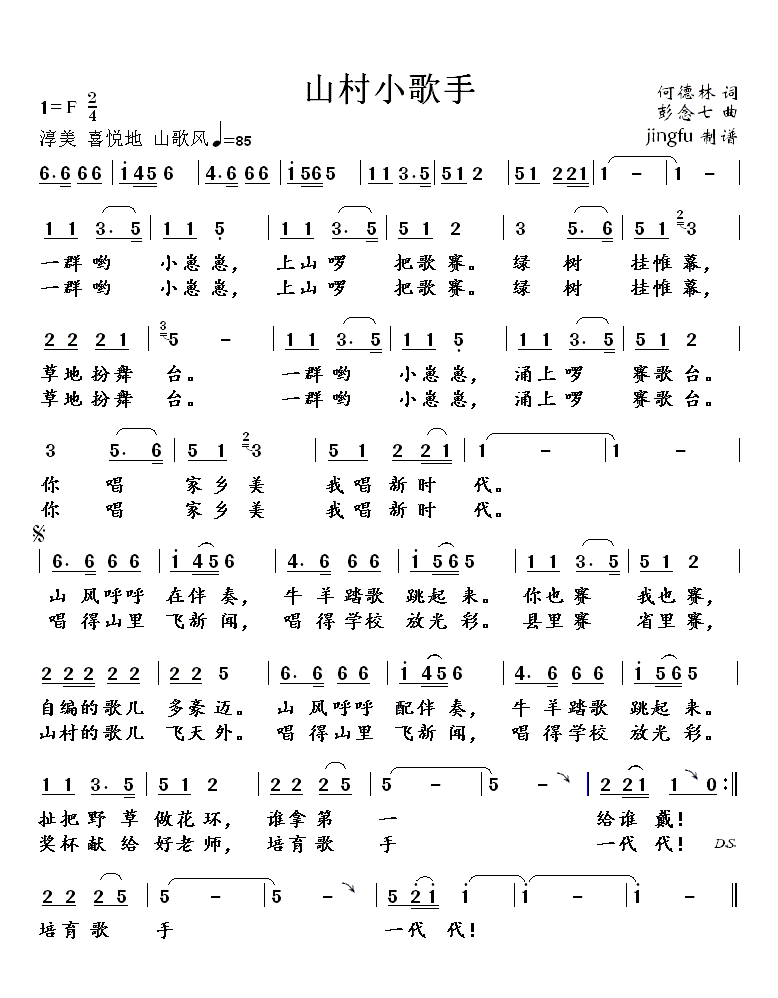 山村小歌手
1=F 2/4
何德林 词
彭念七 曲
淳美 喜悦地 山歌风 ♩=85
jingfu 制谱
6· 6 6 6 | i 4 5 6 | 4· 6 6 6 | i 5 6 5 | 1 1 3· 5 | 5 1 2 | 5 1 2 2 1 | 1 - | 1 - |
1 1 3· 5 | 1 1 5 | 1 1 3· 5 | 5 1 2 | 3 5· 6 | 5 1 2 3 |
一群哟 小崽崽， 上山啰 把歌赛。 绿 树 挂帷幕，
一群哟 小崽崽， 上山啰 把歌赛。 绿 树 挂帷幕，
2 2 2 1 | 3 5 - | 1 1 3· 5 | 1 1 5 | 1 1 3· 5 | 5 1 2 |
草地扮舞 台。 一群哟 小崽崽， 涌上啰 赛歌台。
草地扮舞 台。 一群哟 小崽崽， 涌上啰 赛歌台。
3 5· 6 | 5 1 2 3 | 5 1 2 2 1 | 1 - | 1 - |
你 唱 家乡美 我唱新时 代。
你 唱 家乡美 我唱新时 代。
| 6· 6 6 6 | i 4 5 6 | 4· 6 6 6 | i 5 6 5 | 1 1 3· 5 | 5 1 2 |
山 风呼呼 在伴奏， 牛 羊踏歌 跳起来。 你也赛 我也赛，
唱 得山里 飞新闻， 唱 得学校 放光彩。 县里赛 省里赛，
2 2 2 2 2 | 2 2 5 | 6· 6 6 6 | i 4 5 6 | 4· 6 6 6 | i 5 6 5 |
自编的歌儿 多豪迈。 山 风呼呼 配伴奏， 牛 羊踏歌 跳起来。
山村的歌儿 飞天外。 唱 得山里 飞新闻， 唱 得学校 放光彩。
1 1 3· 5 | 5 1 2 | 2 2 2 5 | 5 - | 5 - | 2 2 1 1 0 :||
扯把野草 做花环， 谁拿第 一 给谁 戴！
奖杯献给 好老师， 培育歌 手 一代 代！ D.S.
2 2 2 5 | 5 - | 5 - | 5 2 i i | i - | i - ||
培育歌 手 一代 代！